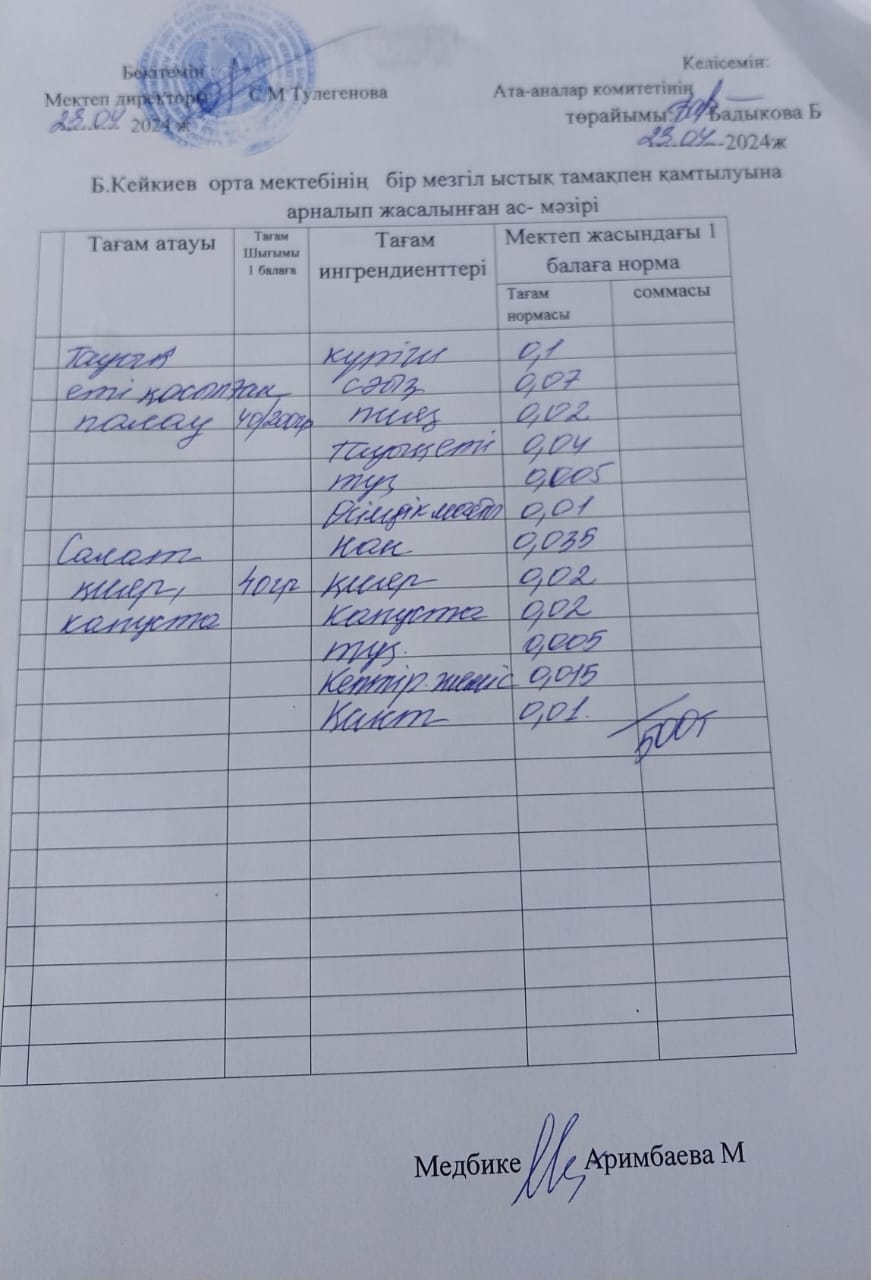 Бекітемін
Келісемін:
Мектеп директоры С.М Тулегенова
Ата-аналар комитетінің
23.04 2024 ж
төрайымы: Бадыкова Б
23.04.-2024ж
Б.Кейкиев орта мектебінің бір мезгіл ыстық тамақпен қамтылуына
арналып жасалынған ас- мәзірі
Тағам атауы
Тағам
Шығымы
1 балаға
Тағам
ингрендиенттері
Мектеп жасындағы 1
балаға норма
Тағам
нормасы
соммасы
Тауық күріш 0,1
еті қосылған сәбіз 0,07
палау 40/200гр пияз 0,02
Тауық еті 0,04
тұз 0,005
Өсімдік майы 0,01
Салат нан 0,035
қияр, 40гр қияр 0,02
капуста капуста 0,02
тұз. 0,005
Кептір. жеміс 0,015
Қант 0,01.
500т
Медбике Аримбаева М